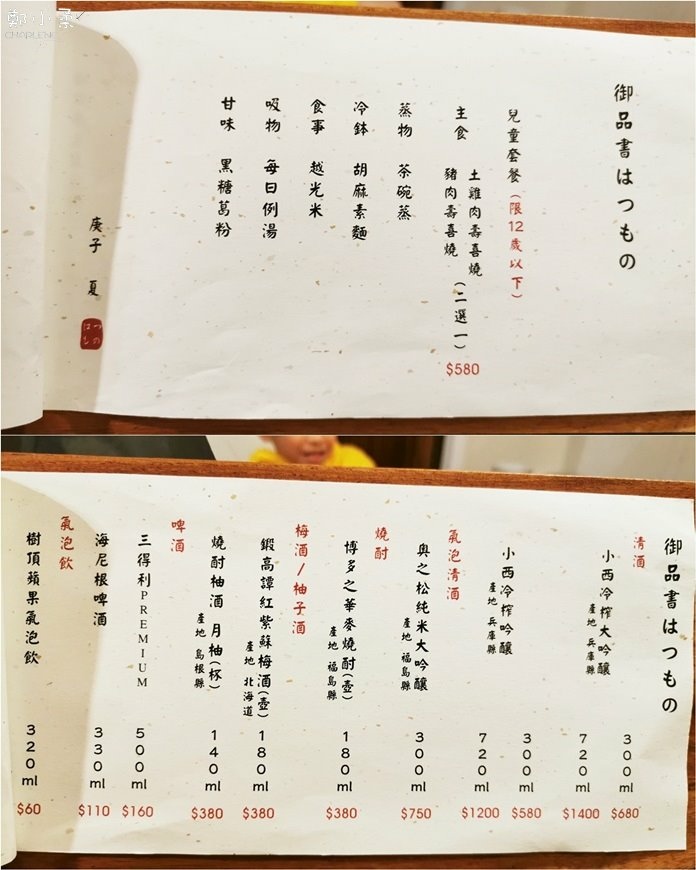 鄭小柔
CHARLENE
御品書はつもの
兒童套餐(限12歲以下)
主食 土雞肉壽喜燒
豬肉壽喜燒 (二選一)
$580
蒸物 茶碗蒸
冷鉢 胡麻素麵
食事 越光米
吸物 每日例湯
甘味 黑糖葛粉
庚子 夏
はつもの
御品書はつもの
清酒
小西冷榨大吟釀
產地 兵庫縣
300ml $680
720ml $1400
小西冷榨吟釀
產地 兵庫縣
300ml $580
720ml $1200
氣泡清酒
奧之松純米大吟釀
產地 福島縣
300ml $750
燒酎
博多之華麥燒酎(壺)
產地 福島縣
180ml $380
梅酒/柚子酒
鍛高譚紅紫蘇梅酒(壺)
產地 北海道
180ml $380
燒酎柚酒 月柚(杯)
產地 島根縣
140ml $380
啤酒
三得利PREMIUM
500ml $160
海尼根啤酒
330ml $110
氣泡飲
樹頂蘋果氣泡飲
320ml $60